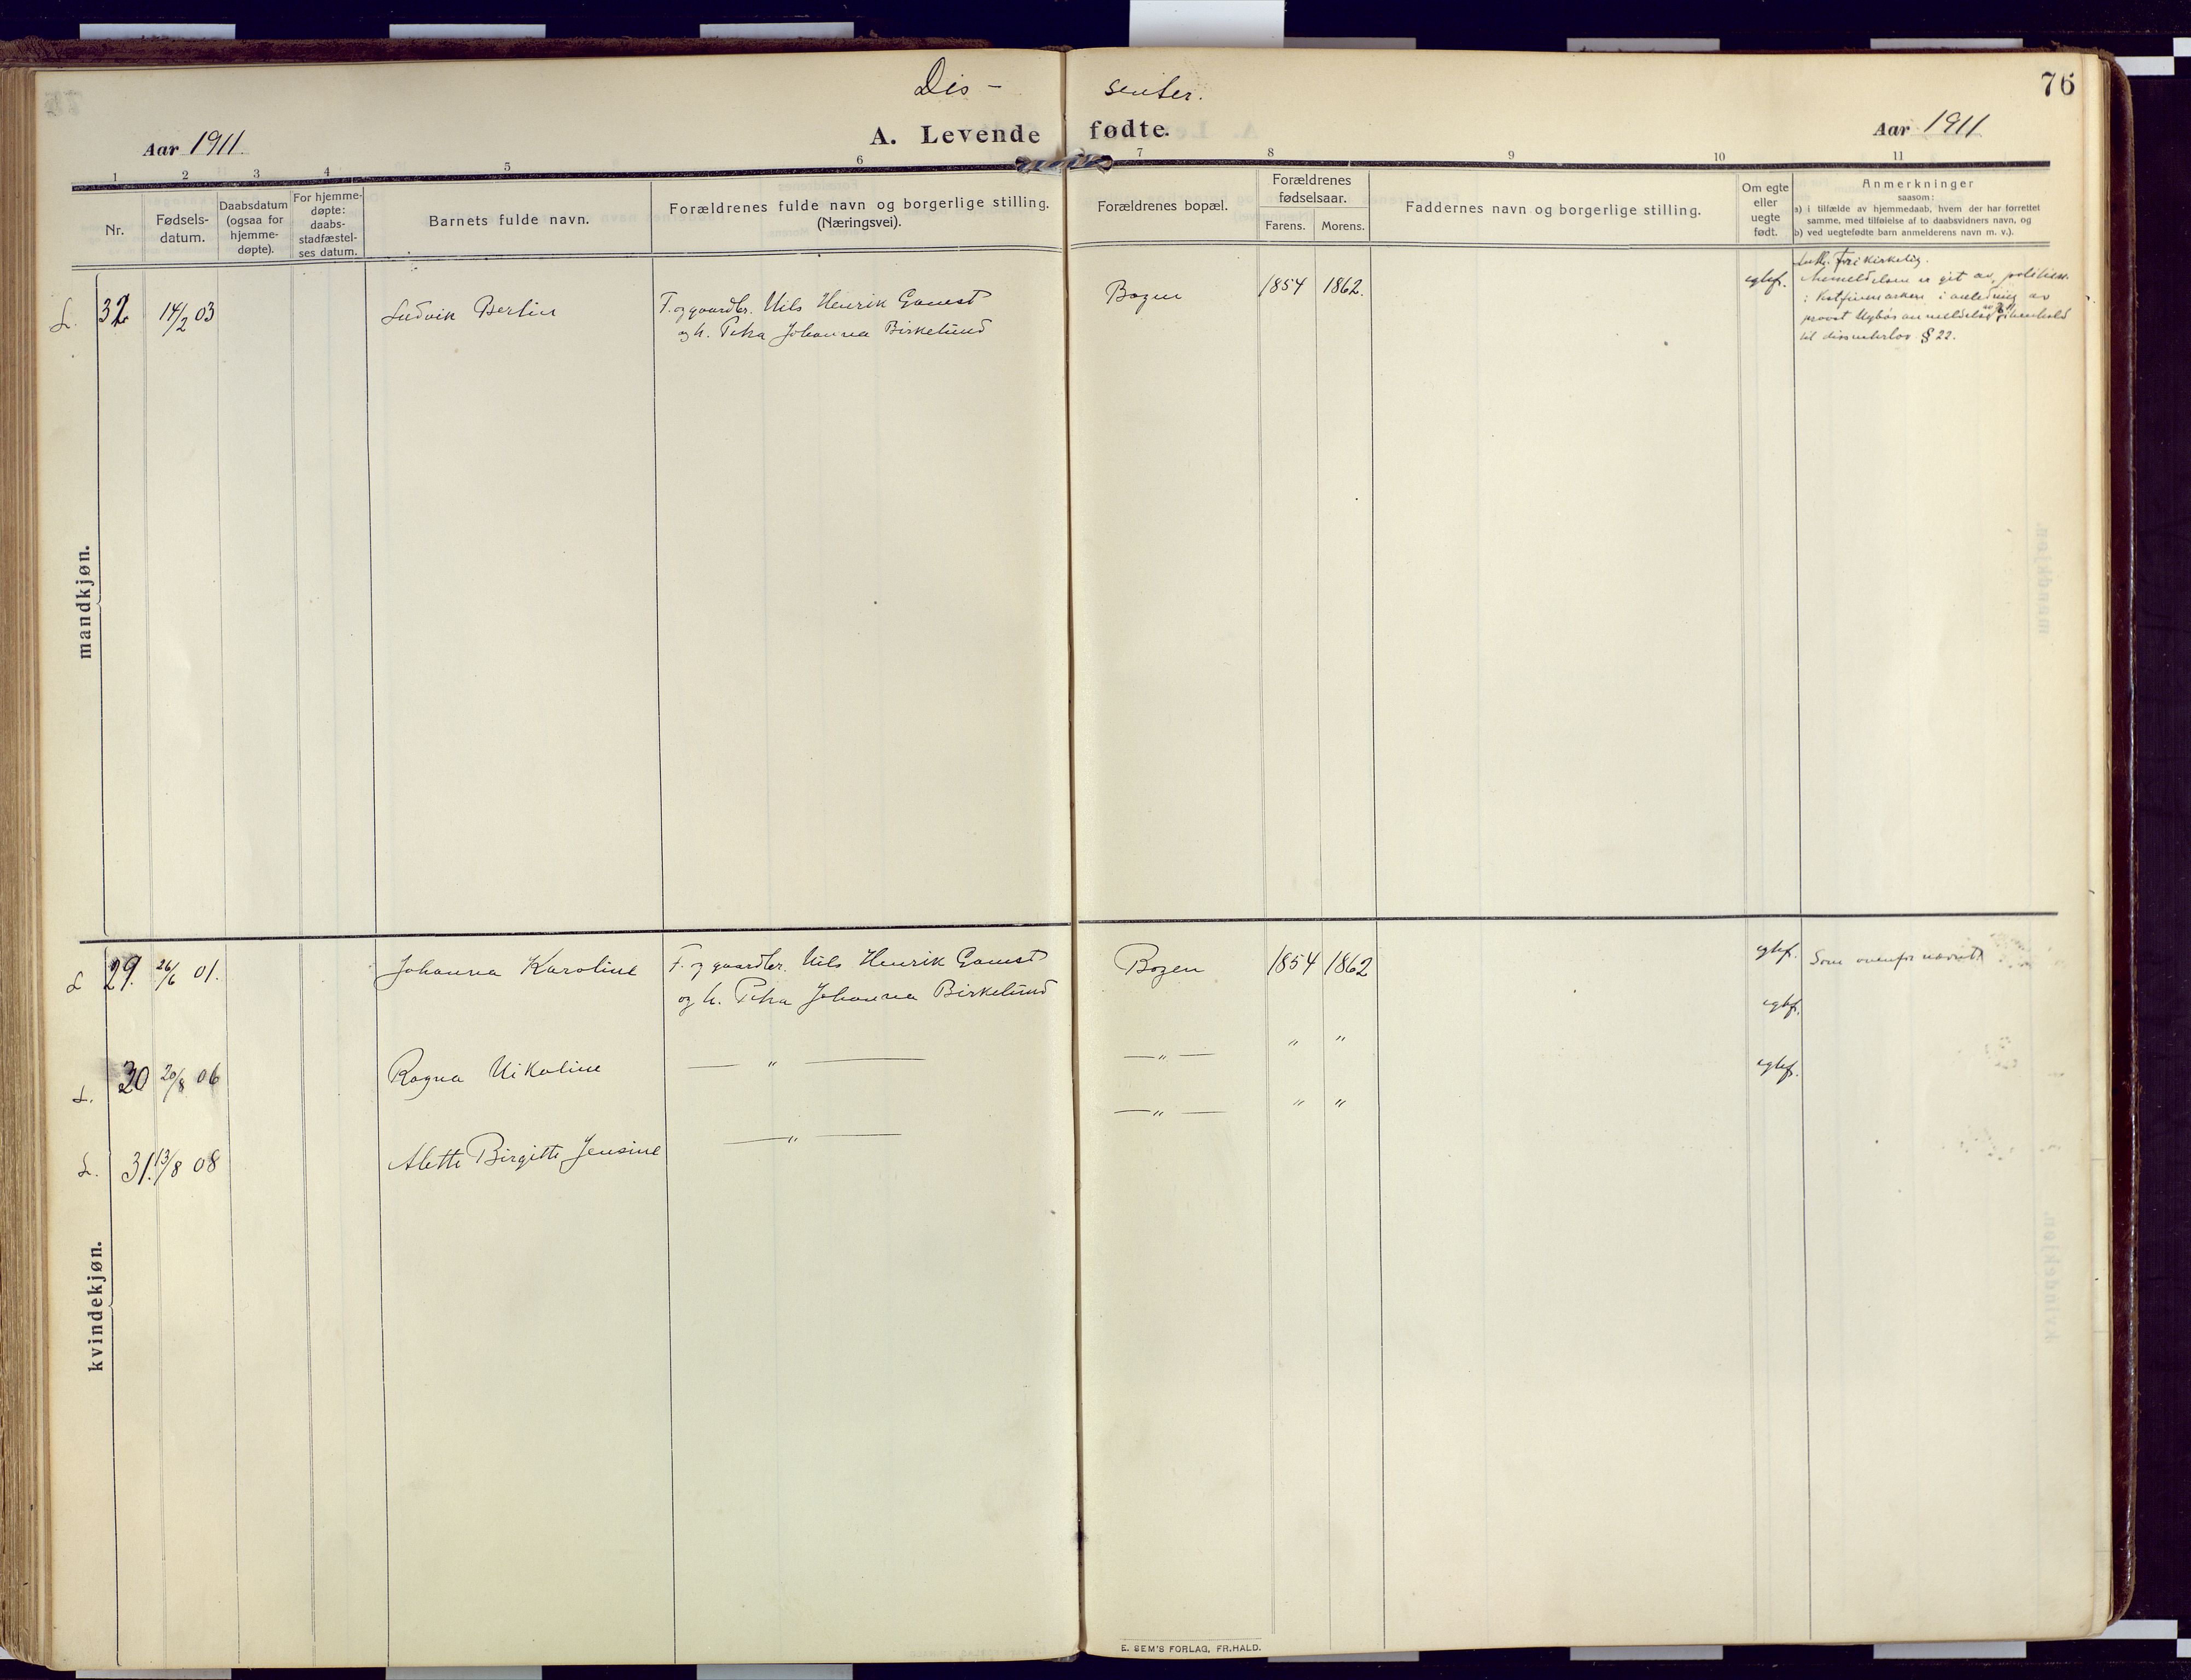 Dis - senter.
76
Aar 1911.
A. Levende fødte.
Aar 1911
1 2 3 4 5 6 7 8 9 10 11
Nr.
Fødsels-
datum.
Daabsdatum
(ogsaa for
hjemme-
døpte).
For hjemme-
døpte:
daabs-
stadfæstel-
ses datum.
Barnets fulde navn.
Forældrenes fulde navn og borgerlige stilling.
(Næringsvei).
Forældrenes bopæl.
Forældrenes
fødselsaar.
Farens. Morens.
Faddernes navn og borgerlige stilling.
Om egte
eller
uegte
født.
Anmerkninger
saasom:
a) i tilfælde av hjemmedaab, hvem der har forrettet
samme, med tilføielse af to daabsvidners navn, og
b) ved uegtefødte barn anmelderens navn m. v.).
mandkjøn.
L. 32 14/2 03 Ludvik Berlin F. og gaardbr. Nils Henrik Gamst
og h. Petra Johanna Birkelund
Bogen 1854 1862. egtef.
Luth. Frikirkelig.
Anmeldelsen er git av politiem.
i anledning av
provst anmeldelse i henhold
til dissenterlov § 22.
kvindekjøn.
L 29. 26/6 01. Johanna Karoline F. og gaardbr. Nils Henrik Gamst
og h. Petra Johanna Birkelund
Bogen 1854 1862 egtef. Som ovenfor nævnt.
L. 30 20/8 06 Ragna Nikoline — " — — " — " " egtef.
L. 31. 13/8 08 Alette Birgitte Jensine — " — — " — " " egtef.
E. SEM'S FORLAG, FR.HALD.